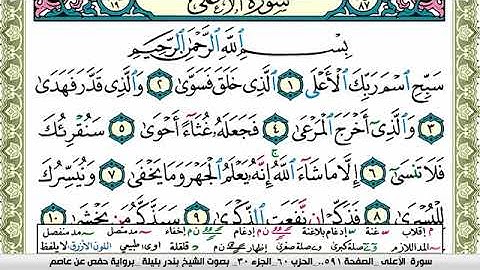 سورة الأعلى
بِسْمِ اللَّهِ الرَّحْمَٰنِ الرَّحِيمِ
سَبِّحِ اسْمَ رَبِّكَ الْأَعْلَى ١ الَّذِي خَلَقَ فَسَوَّىٰ ٢ وَالَّذِي قَدَّرَ فَهَدَىٰ
٣ وَالَّذِي أَخْرَجَ الْمَرْعَىٰ ٤ فَجَعَلَهُ غُثَاءً أَحْوَىٰ ٥ سَنُقْرِئُكَ
فَلَا تَنسَىٰ ٦ إِلَّا مَا شَاءَ اللَّهُ إِنَّهُ يَعْلَمُ الْجَهْرَ وَمَا يَخْفَىٰ ٧ وَنُيَسِّرُكَ
لِلْيُسْرَىٰ ٨ فَذَكِّرْ إِن نَّفَعَتِ الذِّكْرَىٰ ٩ سَيَذَّكَّرُ مَن يَخْشَىٰ ١٠
إقلاب غنة إدغام بلاغنة إخفاء مد متصل مد منفصل
المد اللازم صلة كبرى وصلة صغرى إظهار قلقلة طبيعي اللون الأزرق لا يلفظ
سورة الأعلى _الصفحة ٥٩١_ الحزب ٦٠_ الجزء ٣٠_ بصوت الشيخ بندر بليلة _ برواية حفص عن عاصم